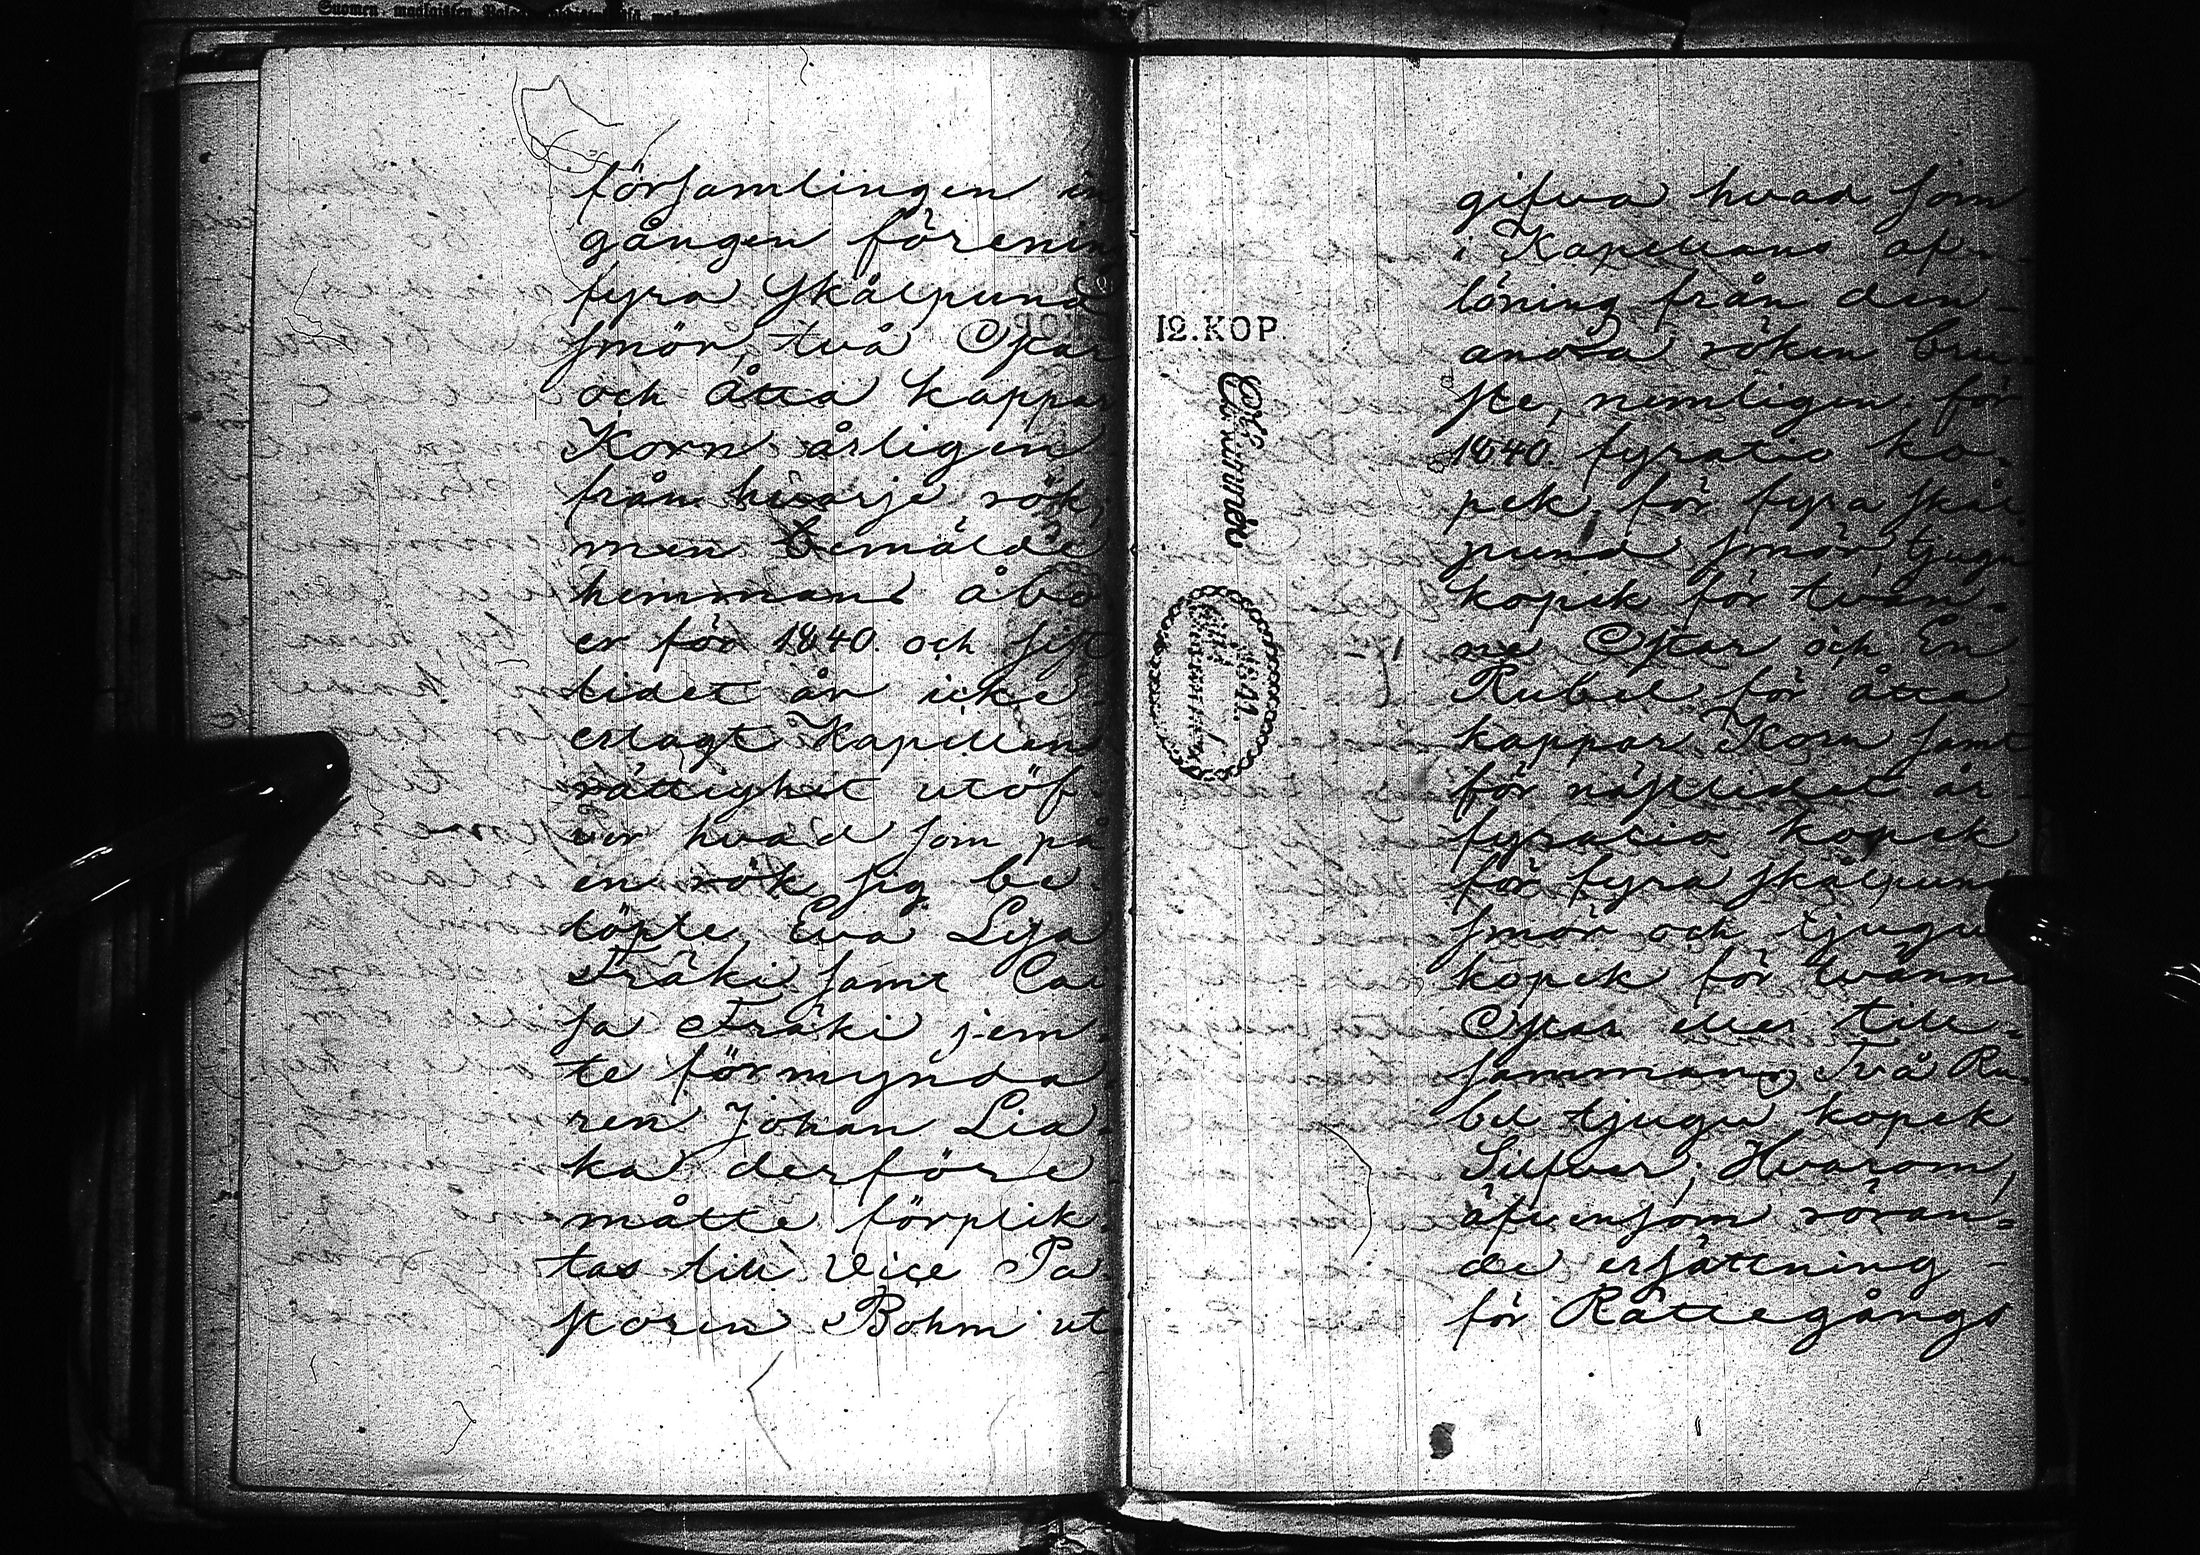 församlingen in
gången förenin
fyra skålpund
smör, två Ostar
och åtta kappar
Korn årligen
från hvarje rök,
men bemälde
hemmans åbo
er för 1840. och sist
lidet år icke
erlagt Kapellan
rättighet utöf
ver hvad som på
en rök sig be
löpte, Eva Lisa
Träki samt Cai
sa Träki jem
te förmynda
ren Johan Lia
ka derföre
måtte förplik
tas till Vice Pa
storen Bohm ut
gifva hvad som
i Kapellans af-
löning från den
andra röken bru-
ste, nemligen för
1840. fyratio ko-
pek, för fyra skål
pund smör, tjugu
kopek för tvän-
ne Ostar och En
Rubel för åtta
kappar Korn samt
för nästlidet år
fyratio kopek
för fyra skålpund
smör och tjugu
kopek för tvänne
Ostar eller till-
sammans Två Ru-
bel tjugu kopek
Silfver; Hvarom,
äfvensom röran-
de ersättning
för Rättegångs
12. KOP.